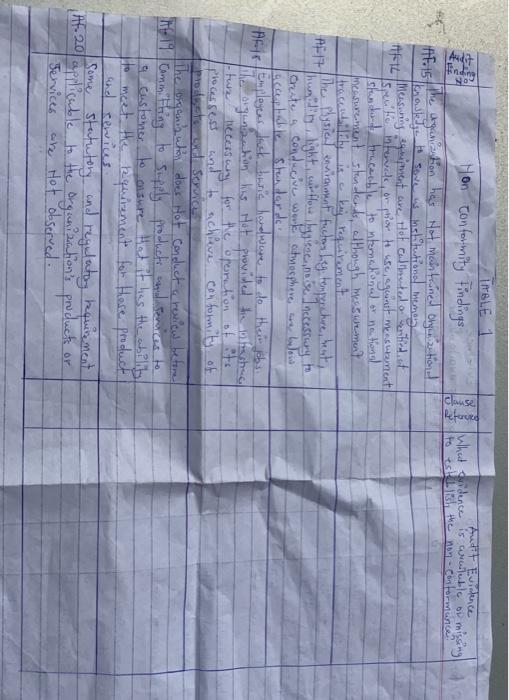 TABLE 1
Audit Finding
Non Conformity findings
Clause Reference
Audit Evidence
What evidence is available or missing to establish the non-conformance
AF-15
The organization has Not maintained organizational
knowledge to serve as institutional memory
AF-16
Measuring equipment are Not calibrated or verified at
specified intervals, or prior to use, against measurement
standard traceable to international or national
measurement standards, although measurement
traceability is a key requirement
AF-17
The physical environment factors (eg temperature, heat,
humidity, light, airflow, hygiene, noise) necessary to
Create a conducive work atmosphere are below
acceptable standards.
AF-18
Employees lack basic hardware to do their jobs.
The organization has Not provided the infrastruc
-ture necessary for the operation of its
processess and to achieve conformity of
products and services
AF-19
The organization does Not conduct a review before
Committing to supply products and services to
a customer to ensure that it has the ability
to meet the requirement for those product
and services
AF-20
Some statutory and regulatory requirement
applicable to the organization's products or
Services are Not observed.